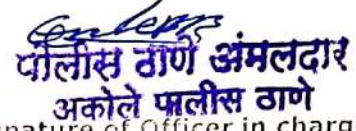 पोलीस ठाणे अंमलदार
अकोले पोलीस ठाणे
nature of Officer in charg